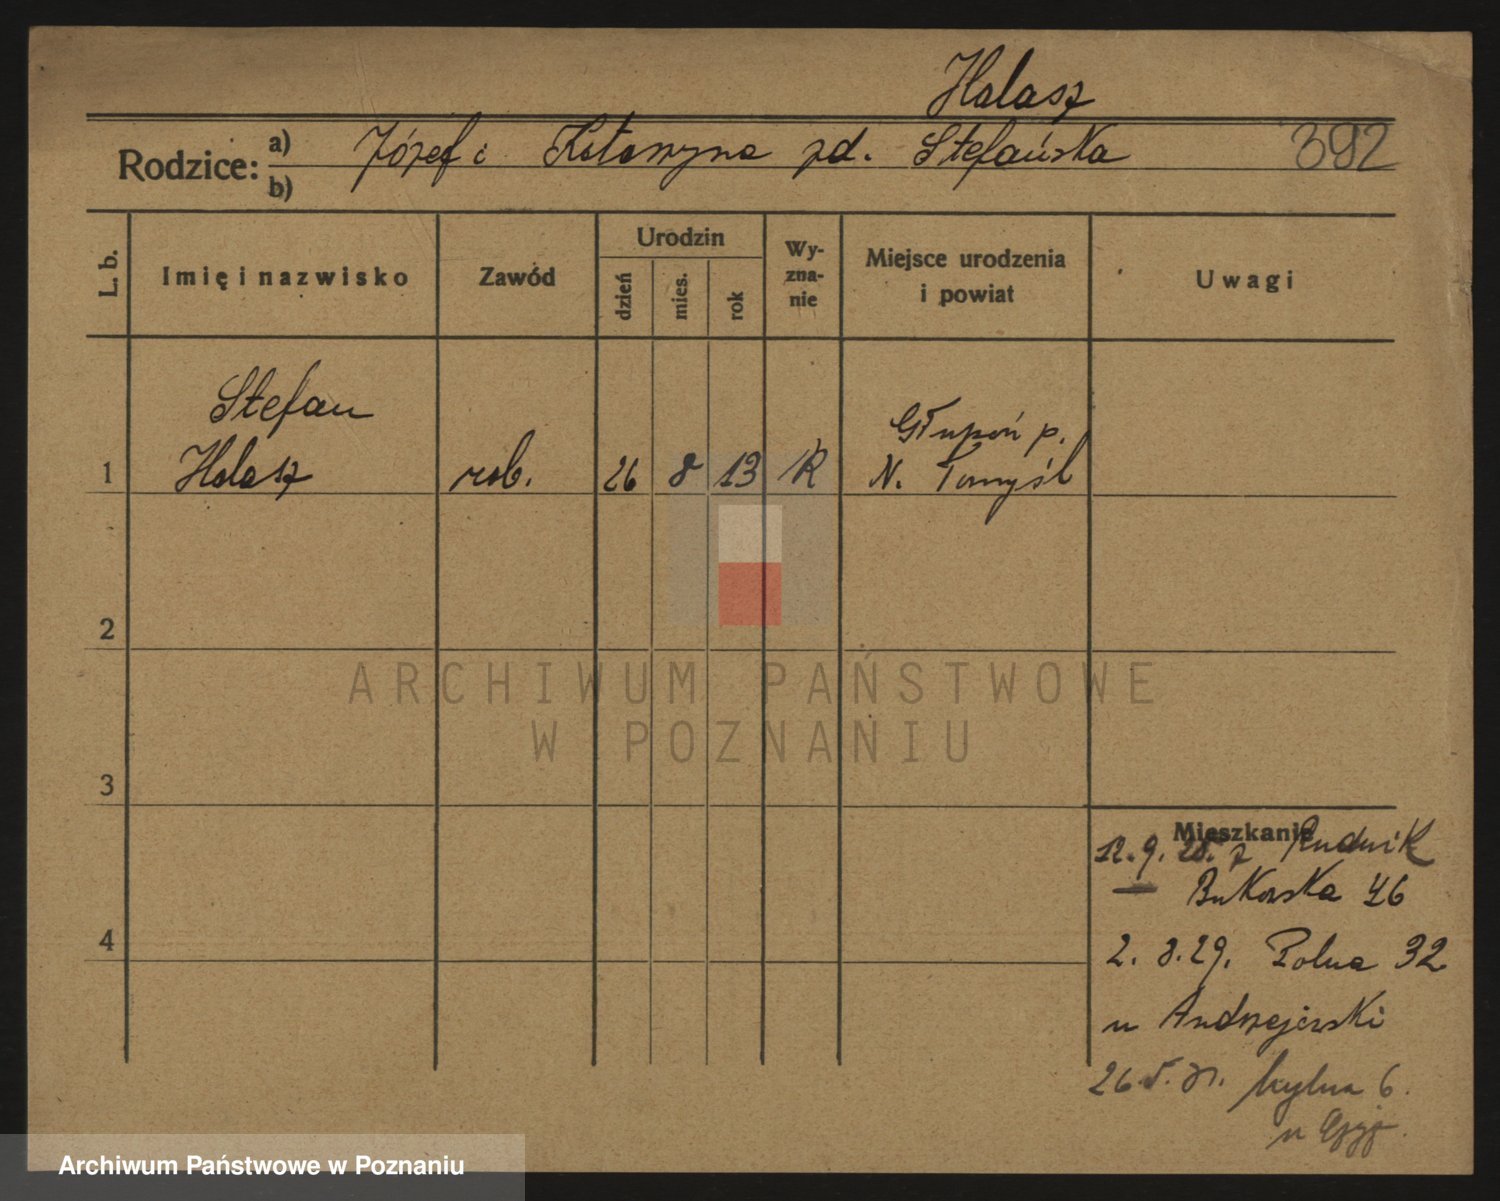 Halasz
Rodzice: a) Józef i Katarzyna zd. Stefańska 392
b)
L. b. Imię i nazwisko Zawód Urodzin dzień mies. rok Wyzna-nie Miejsce urodzenia i powiat Uwagi
Stefan Głupoń p.
1 Halasz rob. 26 8 13 R N. Tomyśl
2
ARCHIWUM PAŃSTWOWE
W POZNANIU
3
Mieszkanie
12. 9. 28. z Rudnik
Bukowska 46
4
2. 8. 29. Polna 32
u Andrzejewski
26. 5. 31. 6.
u
Archiwum Państwowe w Poznaniu